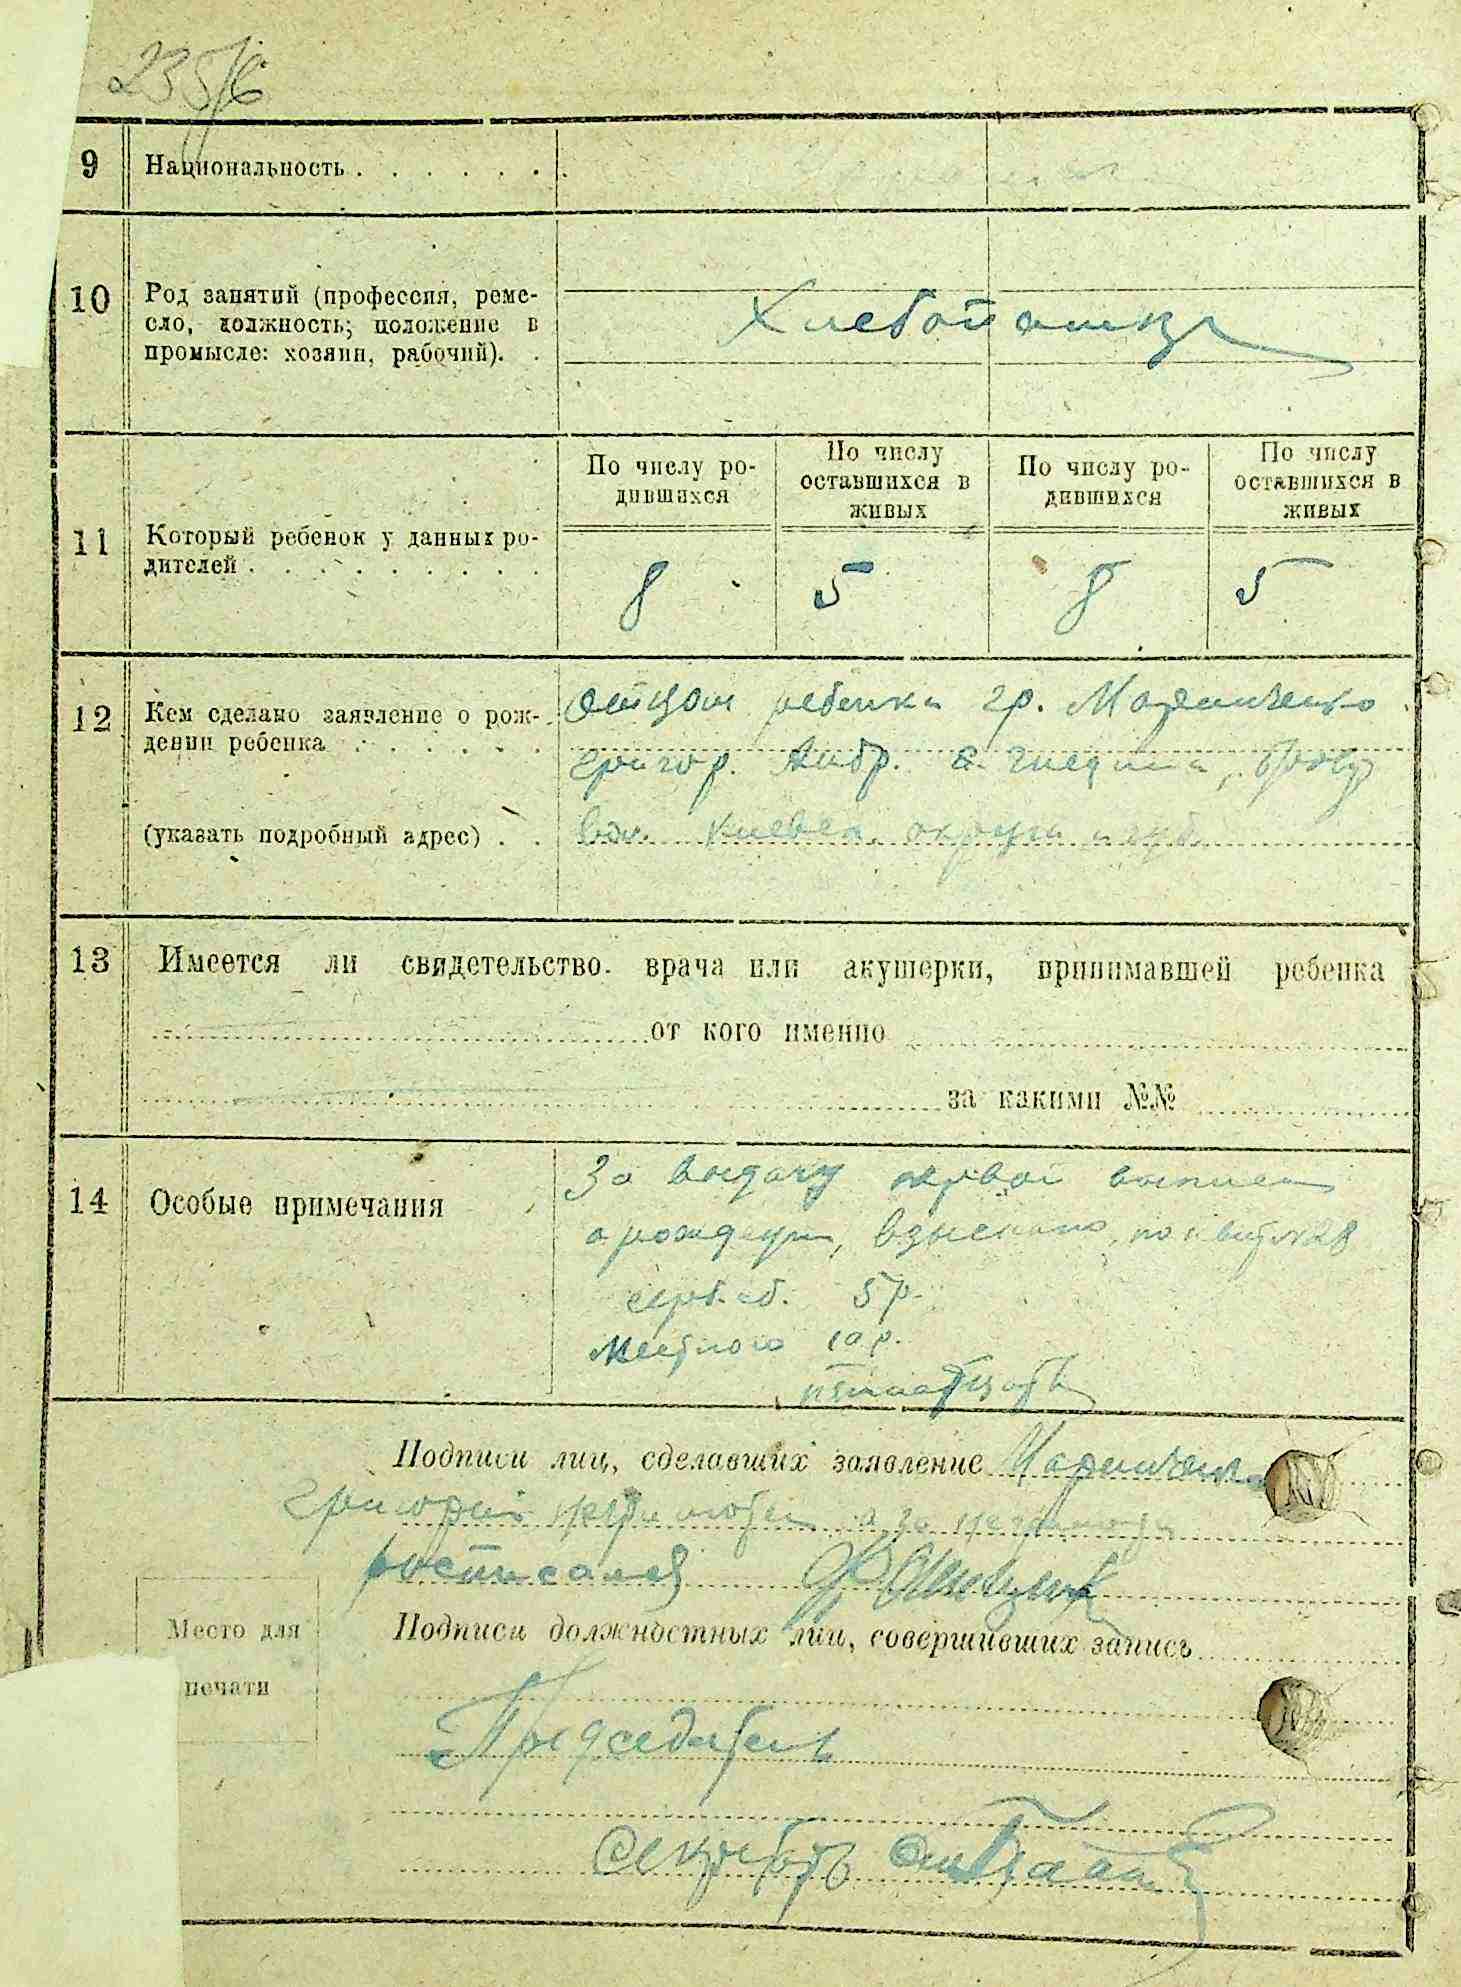 235/6
9 Национальность . . . . . .
10 Род занятий (профессия, реме-
сло, должность; положение в
промысле: хозяин, рабочий). .
Хлебопашец
По числу ро-
дившихся
По числу
оставшихся в
живых
По числу ро-
дившихся
По числу
оставшихся в
живых
11 Который ребенок у данных ро-
дителей . . . . . . . . .
8 5 8 5
12 Кем сделано заявление о рож-
дении ребенка . . . . . .
(указать подробный адрес) . .
отцом ребенка гр. Маринченко
Григор. с. Гнедина,
вол. Киевск. округи и губ.
13 Имеется ли свидетельство врача или акушерки, принимавшей ребенка
от кого именно
за какими №№
14 Особые примечания
За выдачу первой выписи
о рождении, взыскано, по квит. № 28
5 р.
Местного 10 р.
Подписи лиц, сделавших заявление Маринченко
Григорий а за неграмотн
росписался
Подписи должностных лиц, совершивших запись
Место для
печати
Председатель
Секретарь